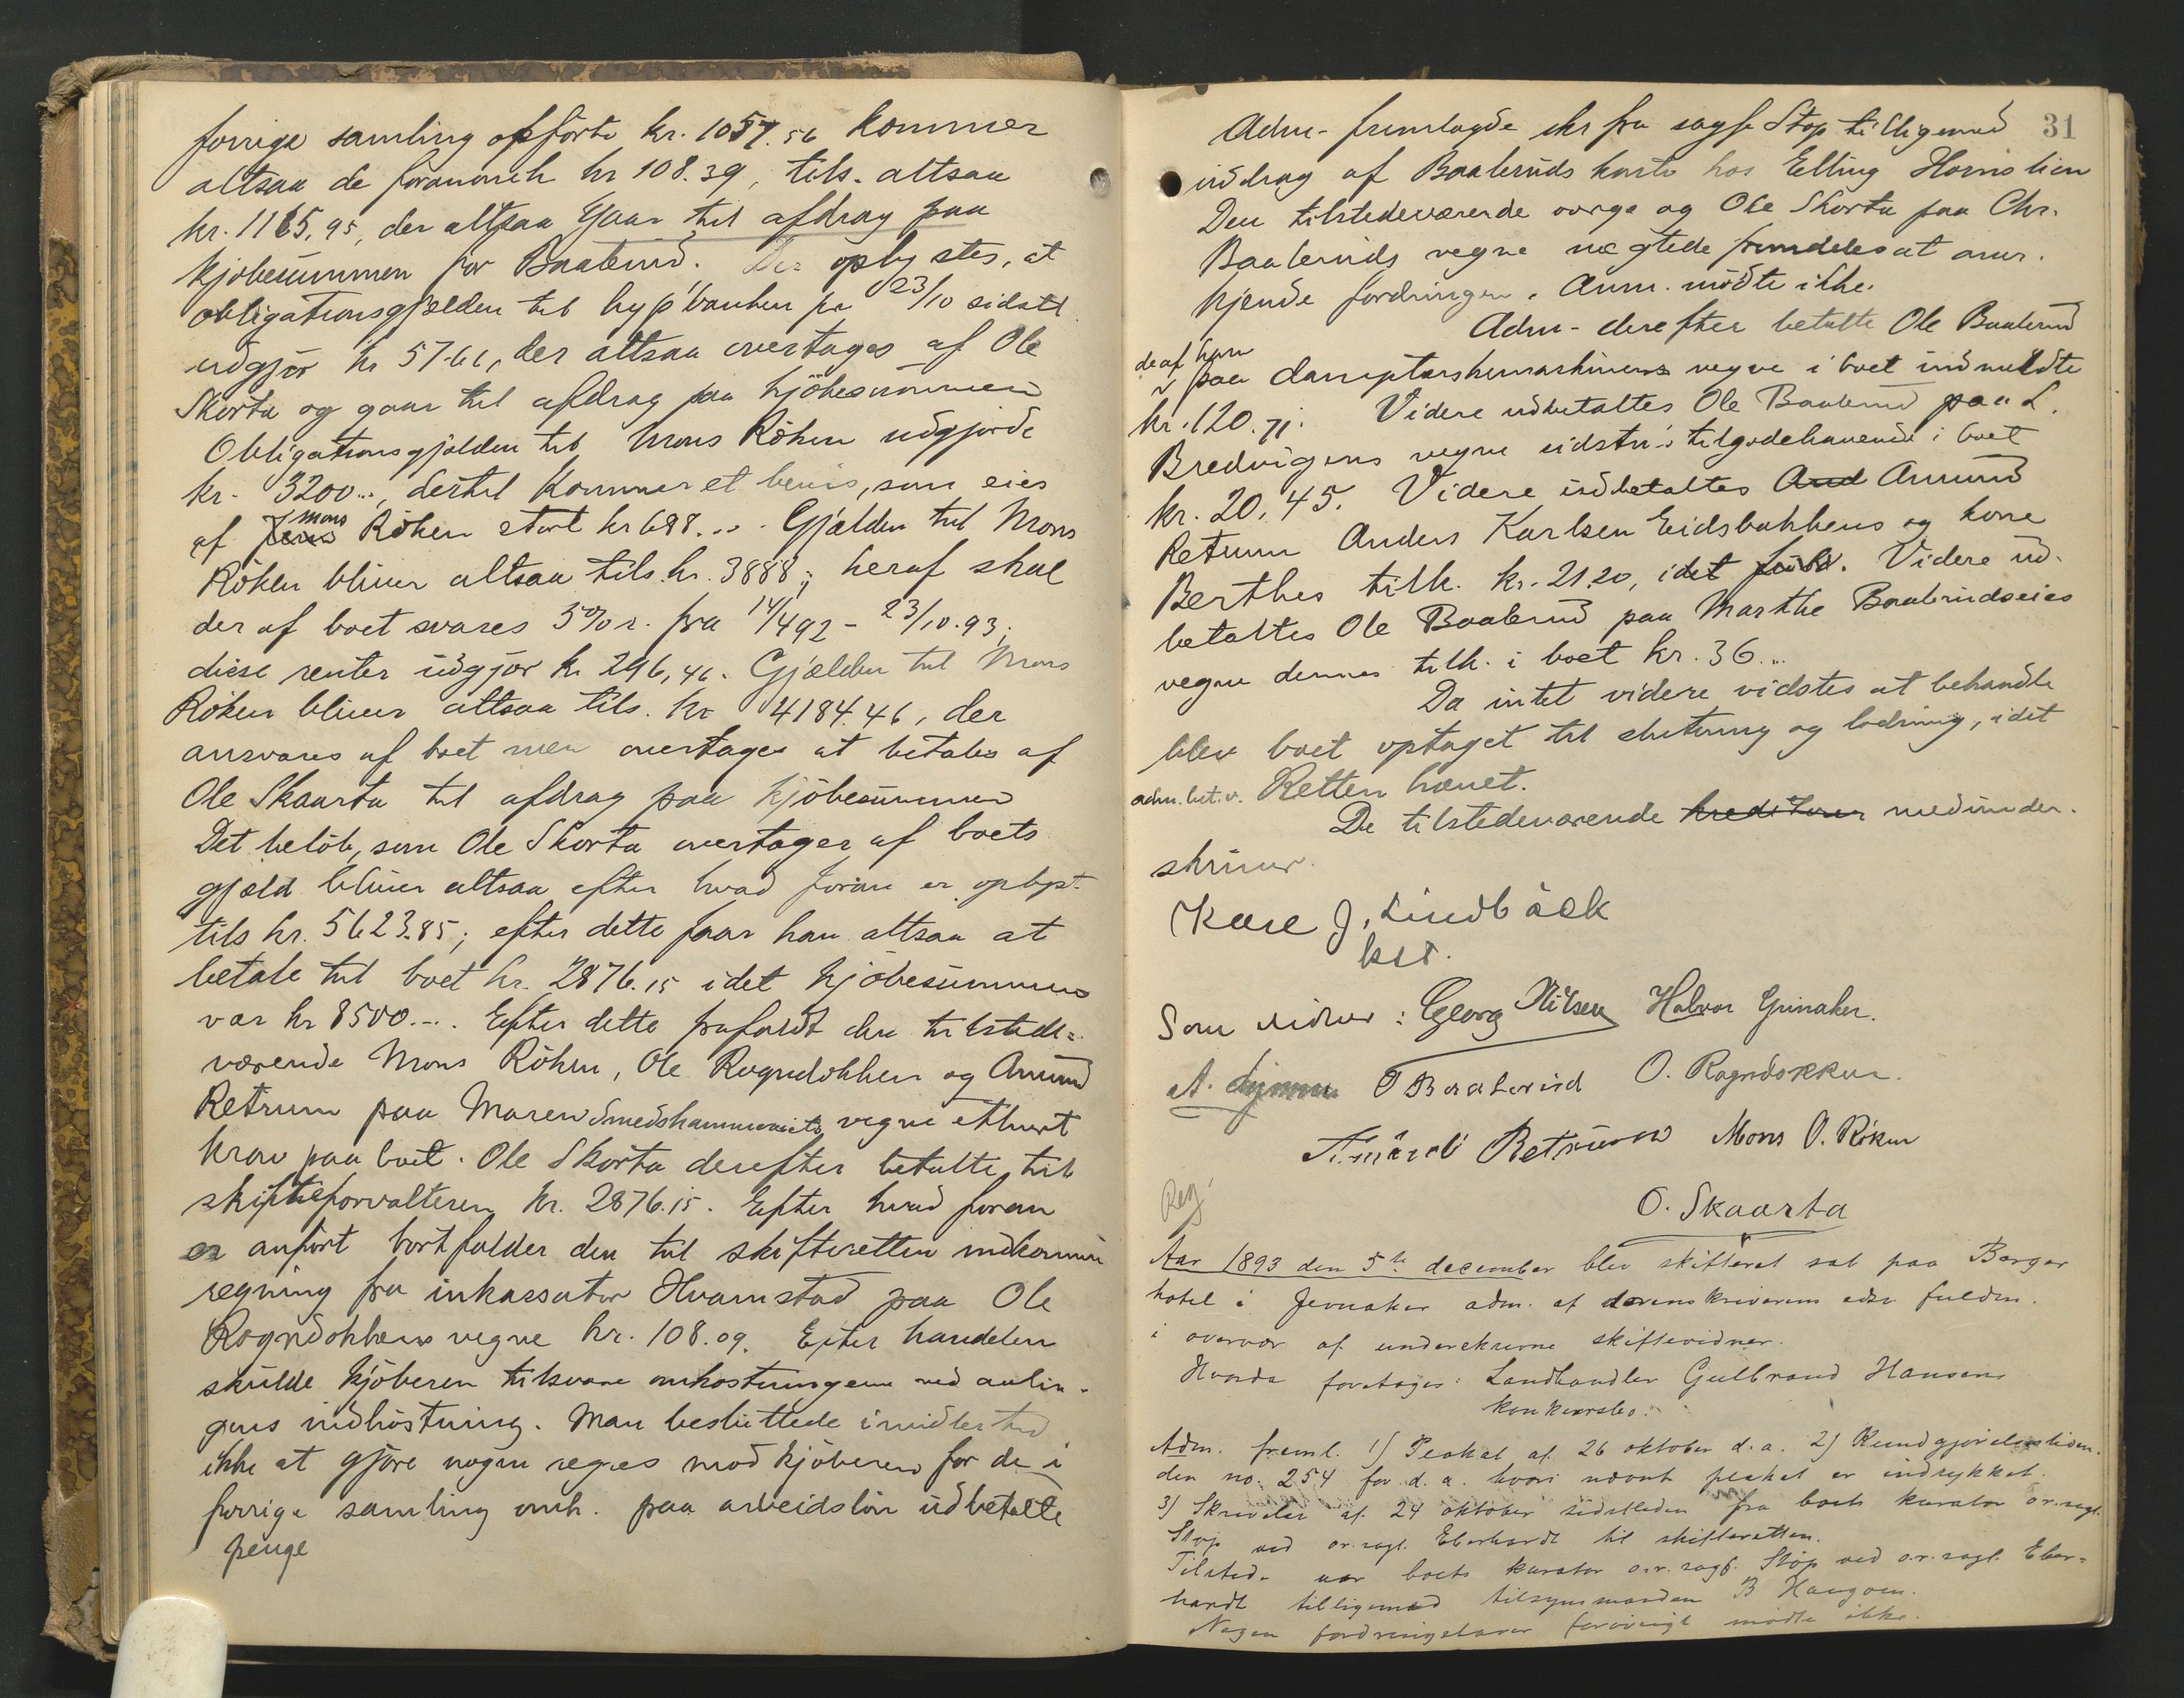 forrige samling opførte kr. 1057.56 kommer
altsaa de foran kr 108.39, tils. altsaa
kr. 1165,95, der altsaa gaar til afdrag paa
kjøbesummen for Baalerud. Der oplystes, at
obligationsgjælden til hyp'banken pr 23/10 sidstl
udgjør kr 57.61, der altsaa overtages af Ole
Skorta og gaar til afdrag paa kjøbesummen
Obligationsgjælden til Mons Røken udgjorde
kr. 3200..., dertil kommer et bevis, som eies
af Jens Mons Røken stort kr 688... Gjælden til Mons
Røken bliver altsaa tils. kr. 3888; heraf skal
der af boet svares 5% r. fra 14/4 92 - 23/10.93;
disse renter udgjør kr 296,46. Gjælden til Mons
Røken bliver altsaa tils. kr 4184.46, der
ansvares af boet men overtages at betales af
Ole Skaarta til afdrag paa kjøbesummen
Det beløb, som Ole Skorta overtager af boets
gjæld bliver altsaa efter hvad foran er oplyst
tils kr. 5623.85; efter dette faar han altsaa at
betale til boet kr. 2876.15 idet kjøbesummen
var kr 8500... Efter dette frafaldt de tilstede=
værende Mons Røken, Ole Rogndokken og Amund
Retrum paa Maren Smedshammereiets vegne ethvert
krav paa boet. Ole Skorta derefter betalte til
skifteforvalteren kr. 2876.15. Efter hvad foran
er anført bortfalder den til skifteretten indkomne
regning fra inkassator Hvamstad paa Ole
Rogndokkens vegne kr. 108.09. Efter handelen
skulde kjøberen tilsvare omkostningerne ved avlin-
gens indhøstning. Man besluttede imidlertid
ikke at gjøre nogen regres mod kjøberen for de i
forrige samling omh. paa arbeidsløn udbetalte
penge
31
Adm. fremlagde skr fra sagf Stop tilligemed
uddrag af Baaleruds konto hos Elling Hornslien
Den tilstedeværende værge og Ole Skorta paa Chr.
Baaleruds vegne nægtede fremdeles at aner-
kjende fordringen. Anm. mødte ikke.
Adm. derefter betalte Ole Baalerud
de af ham
paa damptærskemaskinens vegne i boet indmeldte
kr. 120.71. Videre udbetaltes Ole Baalerud paa L.
Bredvigens vegne sidstn's tilgodehavende i boet
kr. 20.45. Videre udbetaltes And Amund
Retrum Anders Karlsen Eidsbakkens og kone
Berthes tilh. kr. 21.20, idet fuldm. Videre ud-
betaltes Ole Baalerud paa Marthe Baalerudseies
vegne dennes tilh. i boet kr. 36...
Da intet videre vidstes at behandle
blev boet optaget til slutning og lodning, idet
adm. bet. v. Retten hævet.
De tilstedeværende kreditorer medunder-
skriver.
Kare J. Lindbäck
kst.
Som vidner: Georg Nilsen Halvor Grinaker.
A. O Baalerud O. Rogndokken.
Amund Retrum Mons O. Røken
Reg.
O. Skaarta
Aar 1893 den 5te december blev skifteret sat paa Berger
hotel i Jevnaker adm. af sorenskriverens edsv. fuldm.
i overvær af underskrevne skiftevidner.
Hvorda foretoges: Landhandler Gulbrand Hansens
konkursbo.
Adm. freml. 1) Plakat af 26 oktober d.a. 2) Kundgjørelsestiden-
den no. 254 for d.a. hvori nævnt plakat er indrykket.
3) Skrivelse af 24 oktober sidstleden fra boets kurator o.r.sagf.
Stop ved o.r.sagf. Eberhardt til skifteretten.
Tilstede var boets kurator o.r.sagf. Stop ved o.r.sagf. Eber=
hardt tilligemed tilsynsmanden B Haugom.
Nogen fordringshaver forøvrigt mødte ikke.